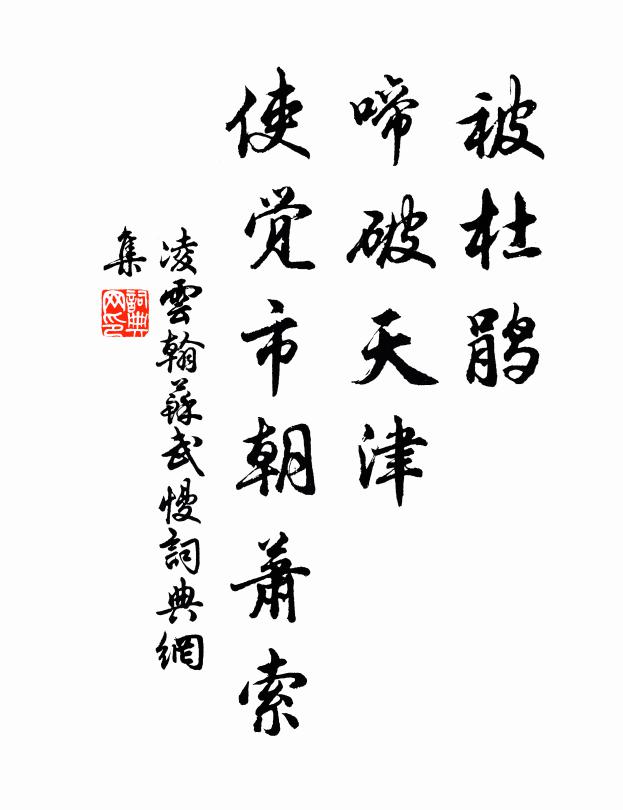 被杜鹃
啼破天津
使觉市朝萧索
凌雲翰蘇武慢詞典網
集
詞典
网印